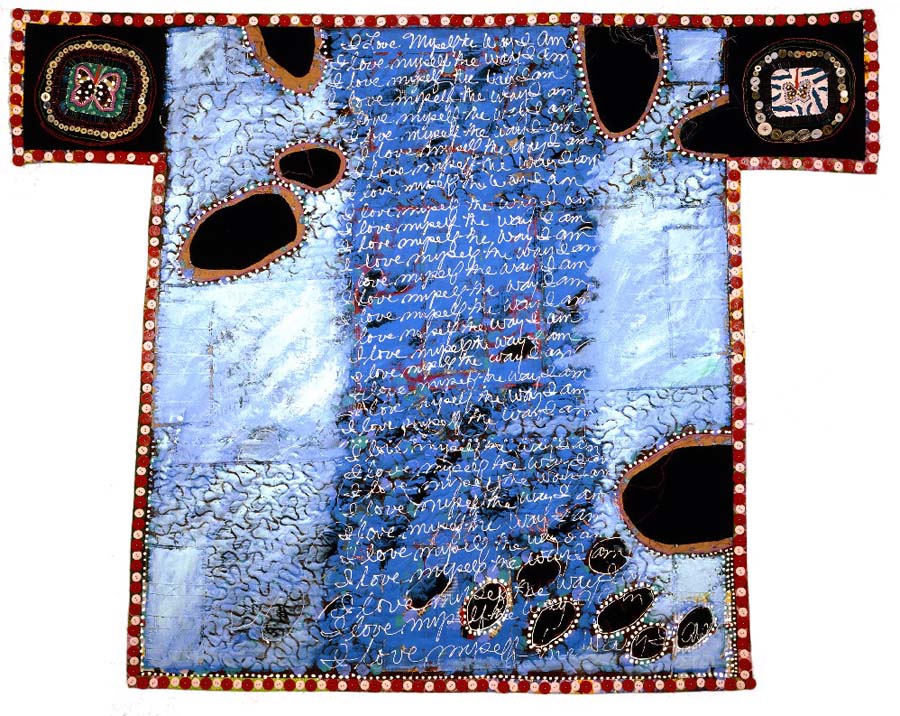 I Love Myself the Way I Am
I love myself the way I am
I love myself the way I am
I love myself the way I am
I love myself the way I am
I love myself the way I am
I love myself the way I am
I love myself the way I am
I love myself the way I am
I love myself the way I am
I love myself the way I am
I love myself the way I am
I love myself the way I am
I love myself the way I am
I love myself the way I am
I love myself the way I am
I love myself the way I am
I love myself the way I am
I love myself the way I am
I love myself the way I am
I love myself the way I am
I love myself the way I am
I love myself the way I am
I love myself the way I am
I love myself the way I am
I love myself the way I am
I love myself the way I am
I love myself the way I am
I love myself the way I am
I love myself the way I
I love myself the way I am
I love myself the way I am